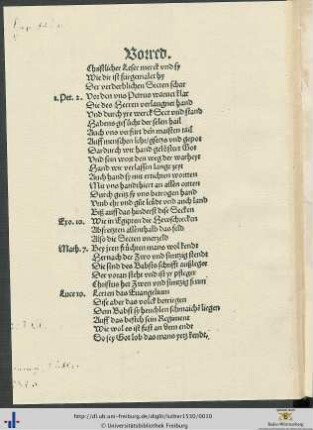 Vorred.
Christlicher Leser merck vnd sy
Wie dir ist fürgemalet hy
Der verderblichen Secten schar
1. Pet. 2. Vor den vns Petrus warnet klar
Die des Herren verlaugnet hand
Vnd durch yre werck Sect vnd stand
Habens gesücht der selen hail
Auch vns verfürt den maisten tail
Auff menschen leh gsetz vnd gepot
Dardurch wir hand gelöstert Got
Vnd sein wort den weg der warheyt
Hand wir verlassen lange zeyt
Auch hand sy mit ertichten worten
Mit vns handthiert an allen orten
Durch geitz sy vns betrogen hand
Vmb ehr vnd gůt leüt vnd auch land
Biß auff das hinderst dise Secken
Exo. 10. Wie in Egipten die Hewschrecken
Abfretzten allenthalb das feld
Also die Secten vnerzeld
Math. 7. Bey jren früchten mans wol kendt
Hernach der zwo vnd sibentzig stendt
Die sind des Babsts schrifft außleger
Der voran steht vnd ist yr pfleger
Christus het zwen vnd sibentzig
Luce 10. Lerten das Euangelium
Dise aber das volck betriegen
Dem Babst sy heuchlen schmaicheln liegen
Auff das besteh sein Regiment
Wie wol es ist fast an dem endt
So sey Got lob das mans yetz kendt.
http://dl.ub.uni-freiburg.de/diglit/luther1530/0010
© Universitätsbibliothek Freiburg
Baden-Württemberg